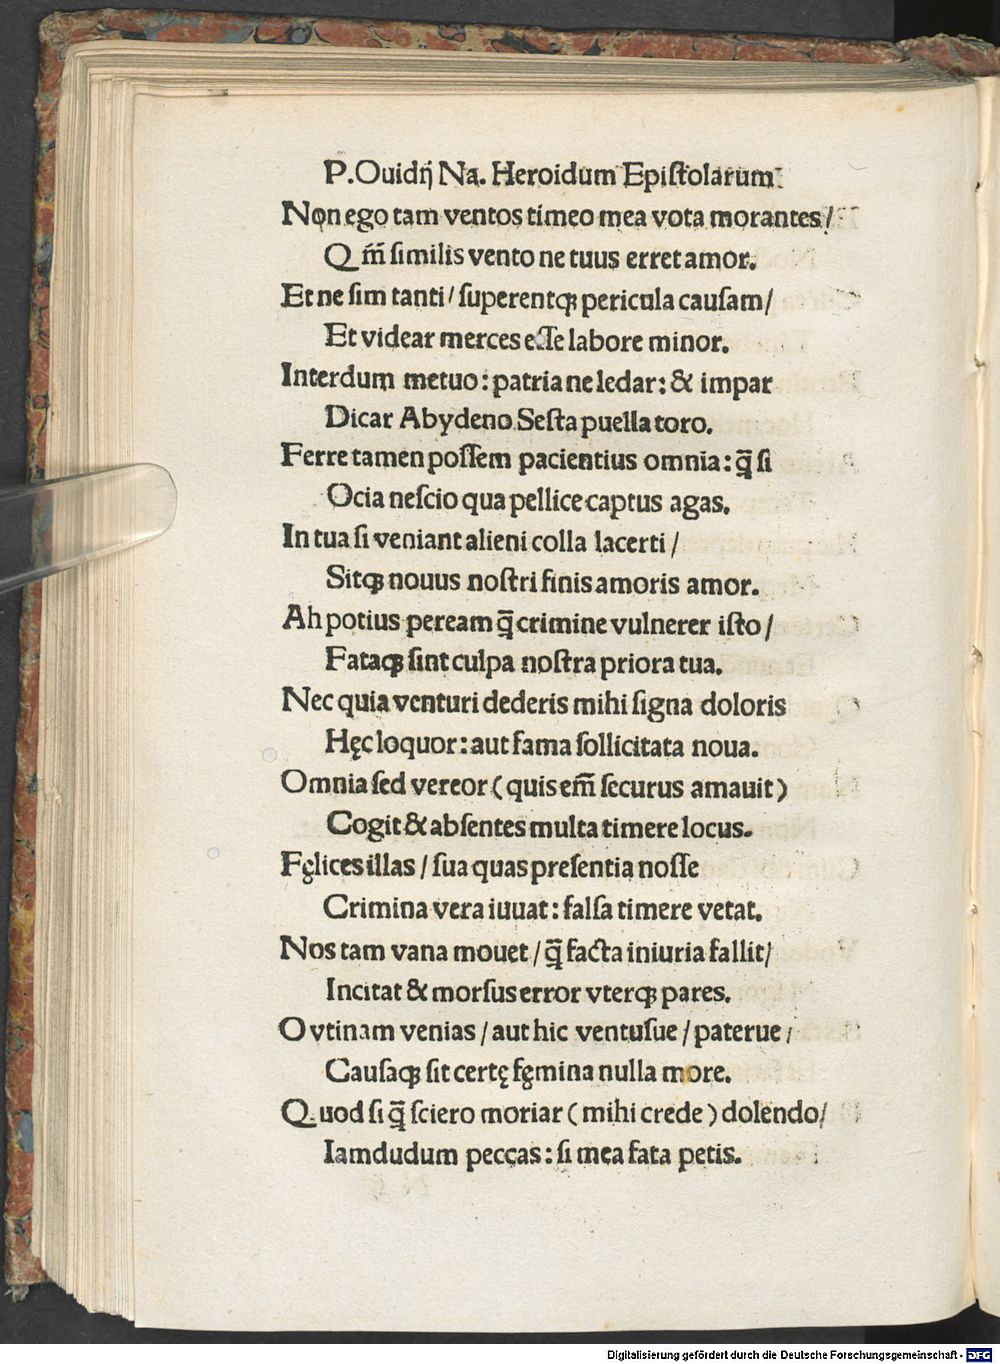 P.Ouidij Na. Heroidum Epiſtolarum:
Non ego tam ventos timeo mea vota morantes/
Q m̃ ſimilis vento ne tuus erret amor.
Et ne ſim tanti/ſuperentqꝫ pericula cauſam/
Et videar merces eſſe labore minor.
Interdum metuo: patria ne ledar: & impar
Dicar Abydeno Seſta puella toro.
Ferre tamen poſſem pacientius omnia: q̃ ſi
Ocia neſcio qua pellice captus agas.
In tua ſi veniant alieni colla lacerti/
Sitqꝫ nouus noſtri finis amoris amor.
Ah potius peream q̃ crimine vulnerer iſto/
Fataqꝫ ſint culpa noſtra priora tua.
Nec quia venturi dederis mihi ſigna doloris
Hęc loquor: aut fama ſollicitata noua.
Omnia ſed vereor (quis em̃ ſecurus amauit)
Cogit & abſentes multa timere locus.
Fęlices illas/ſua quas preſentia noſſe
Crimina vera iuuat: falſa timere vetat.
Nos tam vana mouet/q̃ facta iniuria fallit/
Incitat & morſus error vterqꝫ pares.
O vtinam venias/aut hic ventuſue/paterue/
Cauſaqꝫ ſit certę fęmina nulla more.
Quod ſi q̃ ſciero moriar (mihi crede) dolendo/
Iamdudum peccas: ſi mea fata petis.
Digitalisierung gefördert durch die Deutsche Forschungsgemeinschaft - DFG